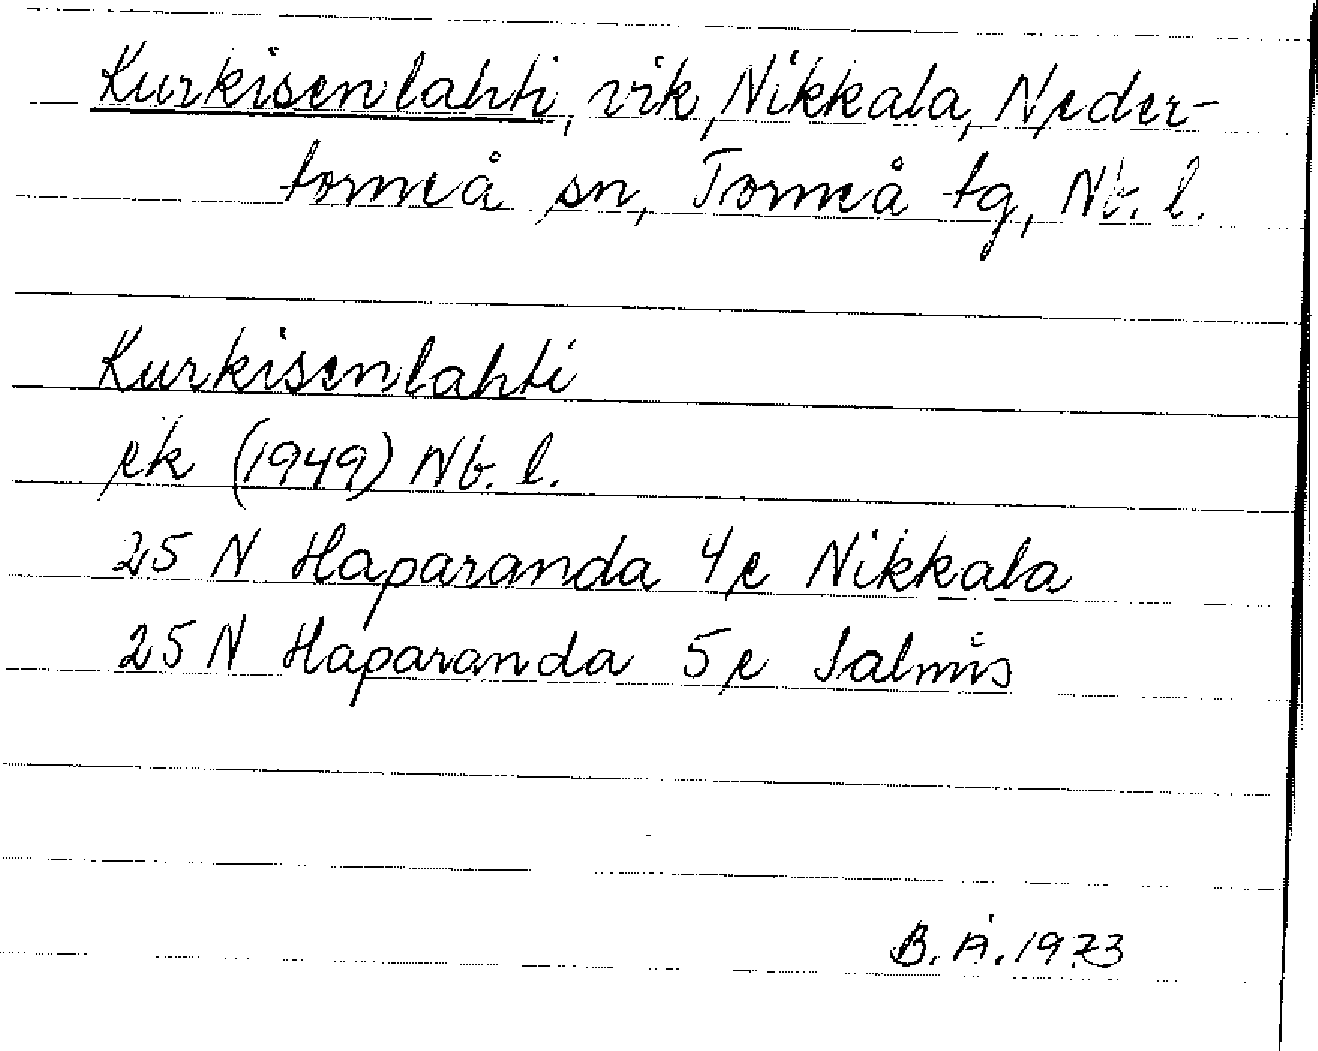 Kurkisenlahti, vik, Nikkala, Neder-
torneå sn, Torneå tg, Nb. l.
Kurkisenlahti
ek (1949) Nb. l.
25 N Haparanda 4e Nikkala
25 N Haparanda 5e Salmis
B. Å. 1973